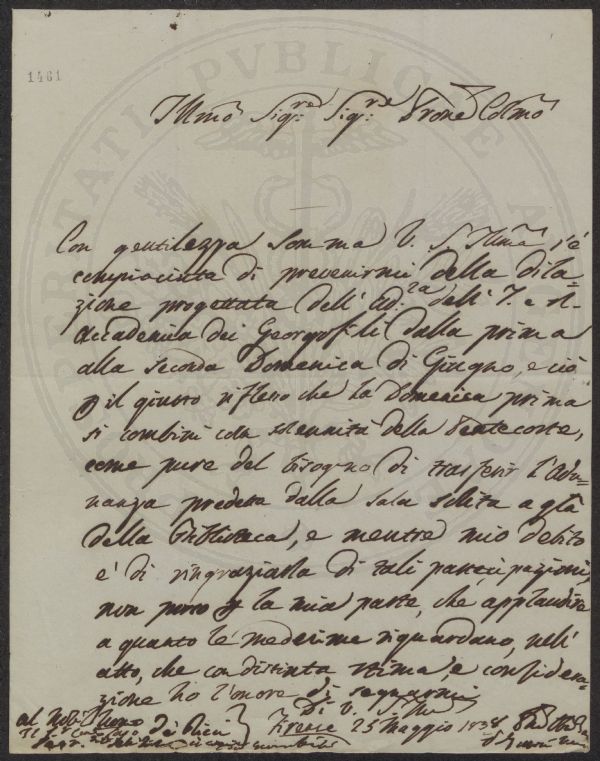 1461
PROSPERITATI PVBLICAE AVGENDAE
Illmo Sigre Sigre Prone Colmo
Con gentilezza somma V. S. Illma s'è
compiaciuta di prevenirmi della dila-
zione progettata dell' Ad.za dell' I. e R.
Accademia dei Georgofili dalla prima
alla seconda Domenica di Giugno, e ciò
p il giusto riflesso che la Domenica prima
si combini colla solennità della Pentecoste,
come pure del bisogno di trasferir l'adu-
nanza predetta dalla sala solita a qlla
della Biblioteca, e mentre mio debito
e' di ringraziarla di tali partecipazioni,
non posso p la mia parte, che applaudire
a quanto le medesime riguardano, nell'
atto, che con distinta stima, e considera-
zione ho l'onore di segnarmi
Di V. S. Illma
Firenze 25 Maggio 1838
al Nobil Uomo
dei Ricci